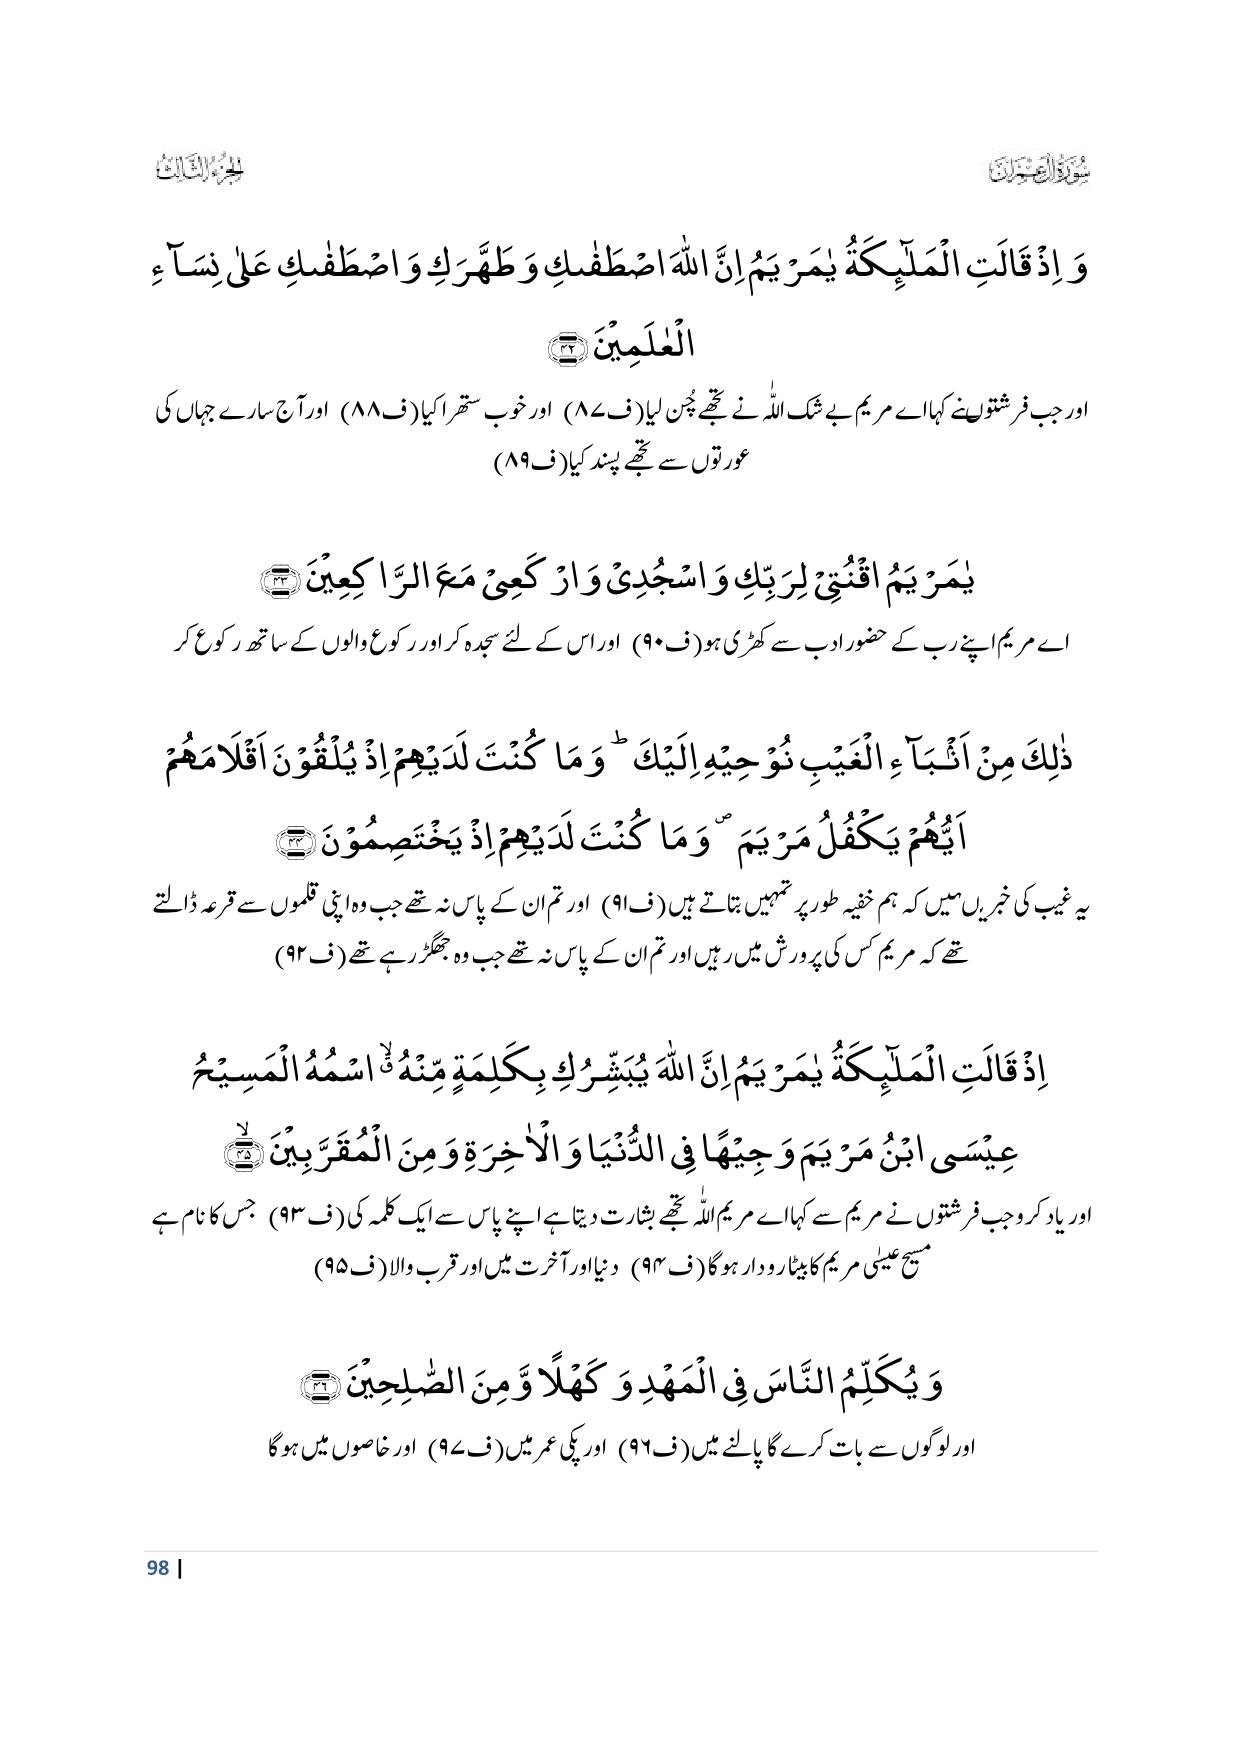 سُوْرَةُ اٰلِ عِمْرَان
الجُزءُ الثَّالِثُ
وَ اِذْ قَالَتِ الْمَلٰٓىِٕكَةُ یٰمَرْیَمُ اِنَّ اللّٰهَ اصْطَفٰىكِ وَ طَهَّرَكِ وَ اصْطَفٰىكِ عَلٰى نِسَآءِ
الْعٰلَمِیْنَ ﴿۴۲﴾
اور جب فرشتوں نے کہا اے مریم بے شک اللّٰہ نے تجھے چُن لیا (ف۸۷) اور خوب ستھرا کیا (ف۸۸) اور آج سارے جہاں کی
عورتوں سے تجھے پسند کیا (ف۸۹)
یٰمَرْیَمُ اقْنُتِیْ لِرَبِّكِ وَ اسْجُدِیْ وَ ارْكَعِیْ مَعَ الرَّاكِعِیْنَ ﴿۴۳﴾
اے مریم اپنے رب کے حضور ادب سے کھڑی ہو (ف۹۰) اور اس کے لئے سجدہ کر اور رکوع والوں کے ساتھ رکوع کر
ذٰلِكَ مِنْ اَنْۢبَآءِ الْغَیْبِ نُوْحِیْهِ اِلَیْكَ ؕ وَ مَا كُنْتَ لَدَیْهِمْ اِذْ یُلْقُوْنَ اَقْلَامَهُمْ
اَیُّهُمْ یَكْفُلُ مَرْیَمَ ۪ وَ مَا كُنْتَ لَدَیْهِمْ اِذْ یَخْتَصِمُوْنَ ﴿۴۴﴾
یہ غیب کی خبریں ہیں کہ ہم خفیہ طور پر تمہیں بتاتے ہیں (ف۹۱) اور تم ان کے پاس نہ تھے جب وہ اپنی قلموں سے قرعہ ڈالتے
تھے کہ مریم کس کی پرورش میں رہیں اور تم ان کے پاس نہ تھے جب وہ جھگڑ رہے تھے (ف۹۲)
اِذْ قَالَتِ الْمَلٰٓىِٕكَةُ یٰمَرْیَمُ اِنَّ اللّٰهَ یُبَشِّرُكِ بِكَلِمَةٍ مِّنْهُ ۖۗ اسْمُهُ الْمَسِیْحُ
عِیْسَى ابْنُ مَرْیَمَ وَجِیْهًا فِی الدُّنْیَا وَ الْاٰخِرَةِ وَ مِنَ الْمُقَرَّبِیْنَ ﴿ۙ۴۵﴾
اور یاد کرو جب فرشتوں نے مریم سے کہا اے مریم اللّٰہ تجھے بشارت دیتا ہے اپنے پاس سے ایک کلمہ کی (ف۹۳) جس کا نام ہے
مسیح عیسٰی مریم کا بیٹا رو دار ہو گا (ف۹۴) دنیا اور آخرت میں اور قرب والا (ف۹۵)
وَ یُكَلِّمُ النَّاسَ فِی الْمَهْدِ وَ كَهْلًا وَّ مِنَ الصّٰلِحِیْنَ ﴿۴۶﴾
اور لوگوں سے بات کرے گا پالنے میں (ف۹۶) اور پکی عمر میں (ف۹۷) اور خاصوں میں ہو گا
98 |